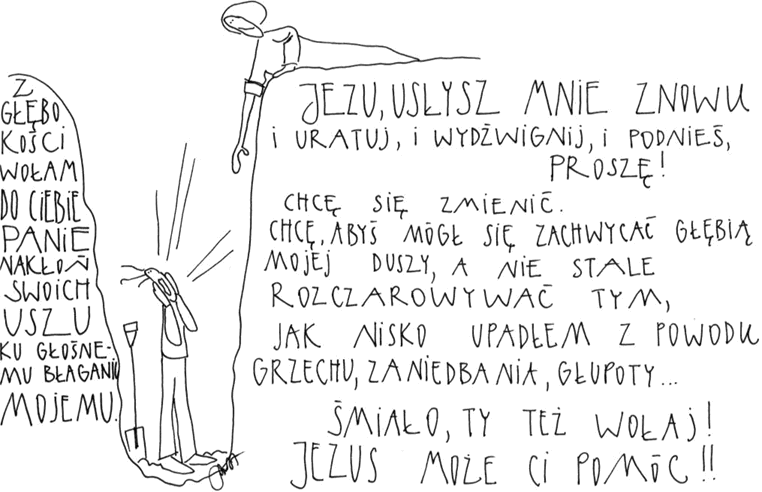 Z
GŁĘBO
KOŚCI
WOŁAM
DO CIEBIE
PANIE
NAKŁOŃ
SWOICH
USZU
KU GŁOŚNE-
MU BŁAGANIU
MOJEMU.
JEZU, USŁYSZ MNIE ZNOWU
I URATUJ, I WYDŹWIGNIJ, I PODNIEŚ,
PROSZĘ!
CHCĘ SIĘ ZMIENIĆ.
CHCĘ, ABYŚ MÓGŁ SIĘ ZACHWYCAĆ GŁĘBIĄ
MOJEJ DUSZY, A NIE STALE
ROZCZAROWYWAĆ TYM,
JAK NISKO UPADŁEM Z POWODU
GRZECHU, ZANIEDBANIA, GŁUPOTY...
ŚMIAŁO, TY TEŻ WOŁAJ!
JEZUS MOŻE CI POMÓC!!